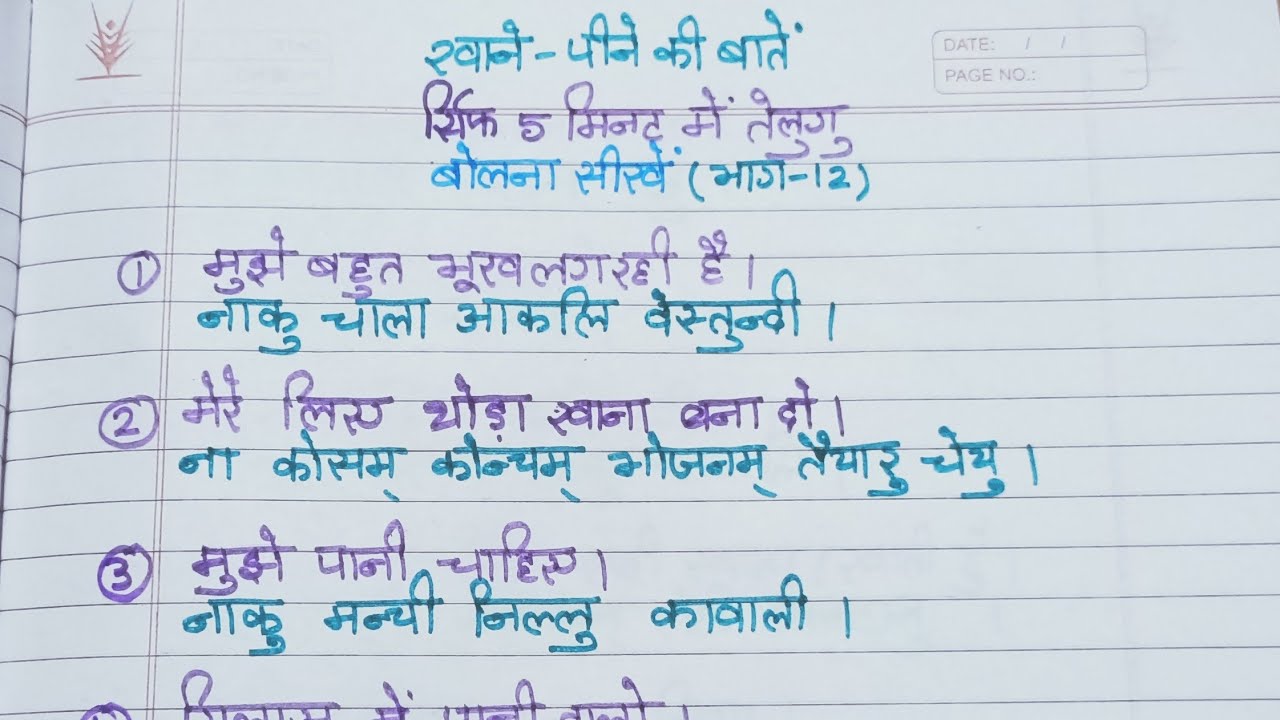 खाने - पीने की बातें
DATE: / /
PAGE NO.:
सिर्फ 5 मिनट में तेलुगु
बोलना सीखें (भाग-12)
① मुझे बहुत भूख लग रही है।
नाकु चाला आकलि वेस्तुन्दी।
② मेरे लिए थोड़ा खाना बना दो।
ना कोसम् कोन्चम् भोजनम् तैयारु चेयु।
③ मुझे पानी चाहिए।
नाकु मन्ची निल्लु कावाली।
में पानी